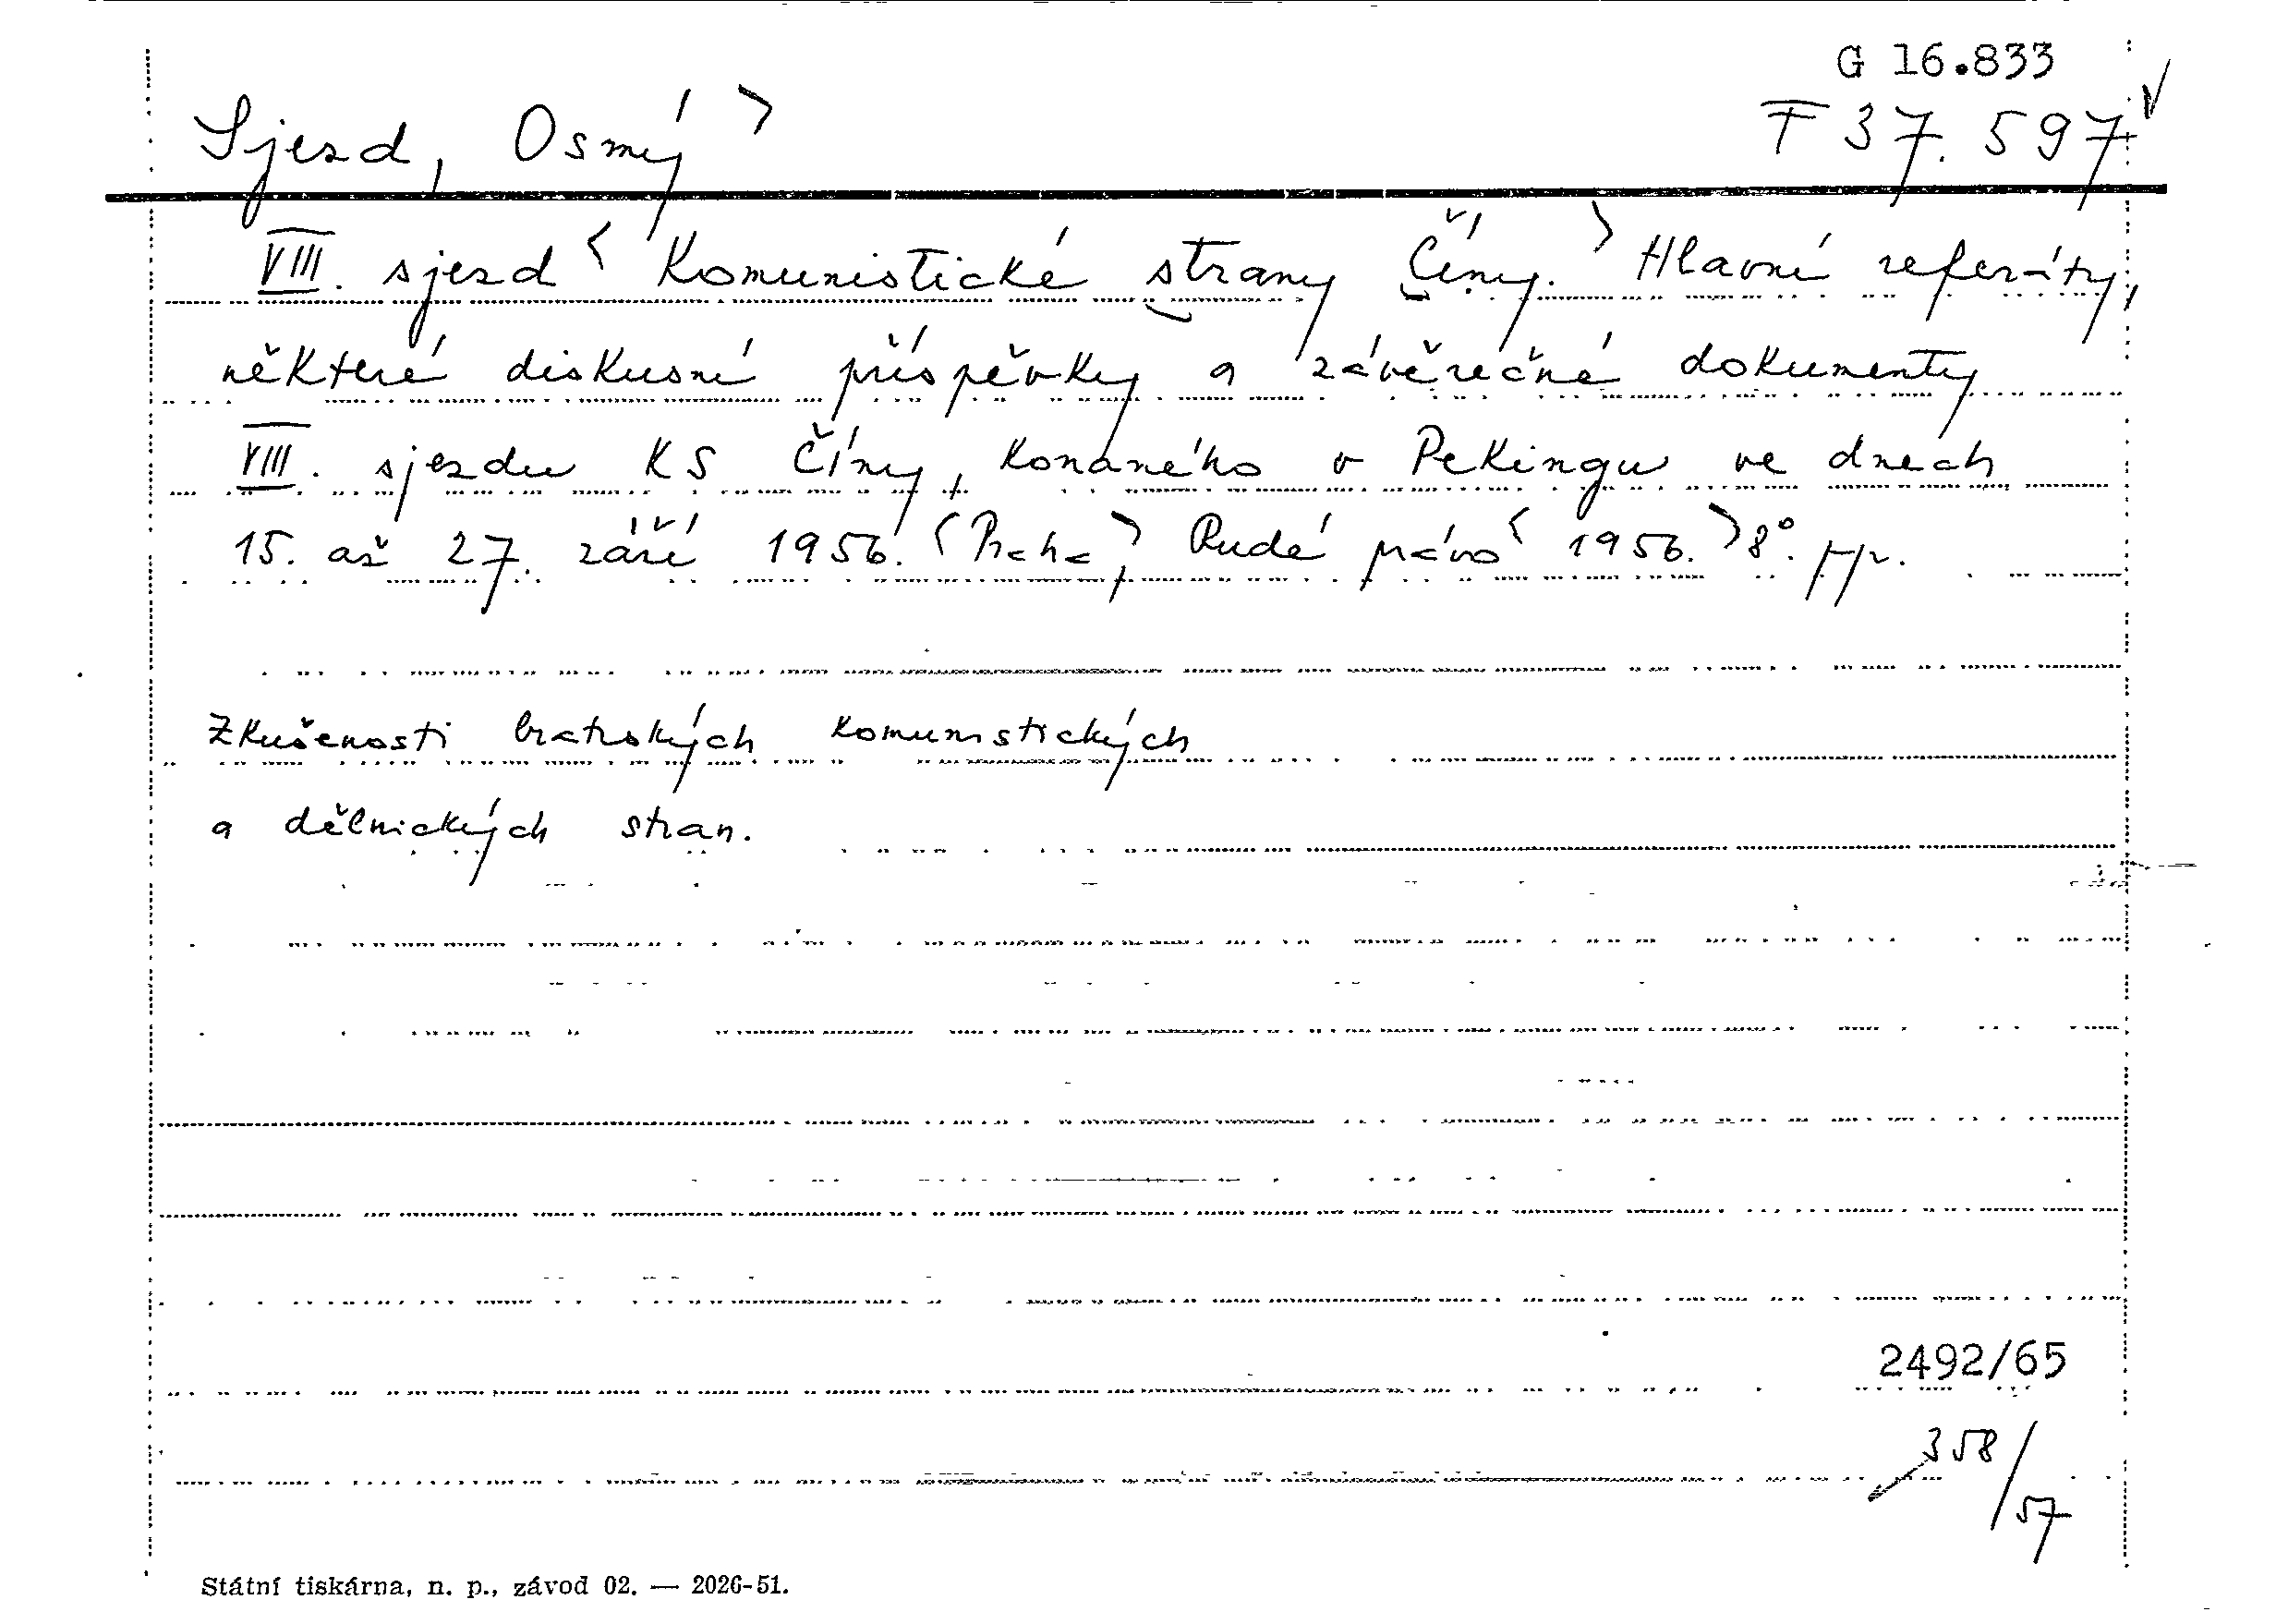 G 16.833
Sjezd, Osmý >
F 37.597
VIII. sjezd < Komunistické strany Číny. > Hlavní referáty,
některé diskusní příspěvky a závěrečné dokumenty
VIII. sjezdu KS Číny, konaného v Pekingu ve dnech
15. až 27. září 1956. < Praha, > Rudé právo < 1956. > 8°.
Zkušenosti bratrských komunistických
a dělnických stran.
2492/65
358/57
Státní tiskárna, n. p., závod 02. — 2026-51.